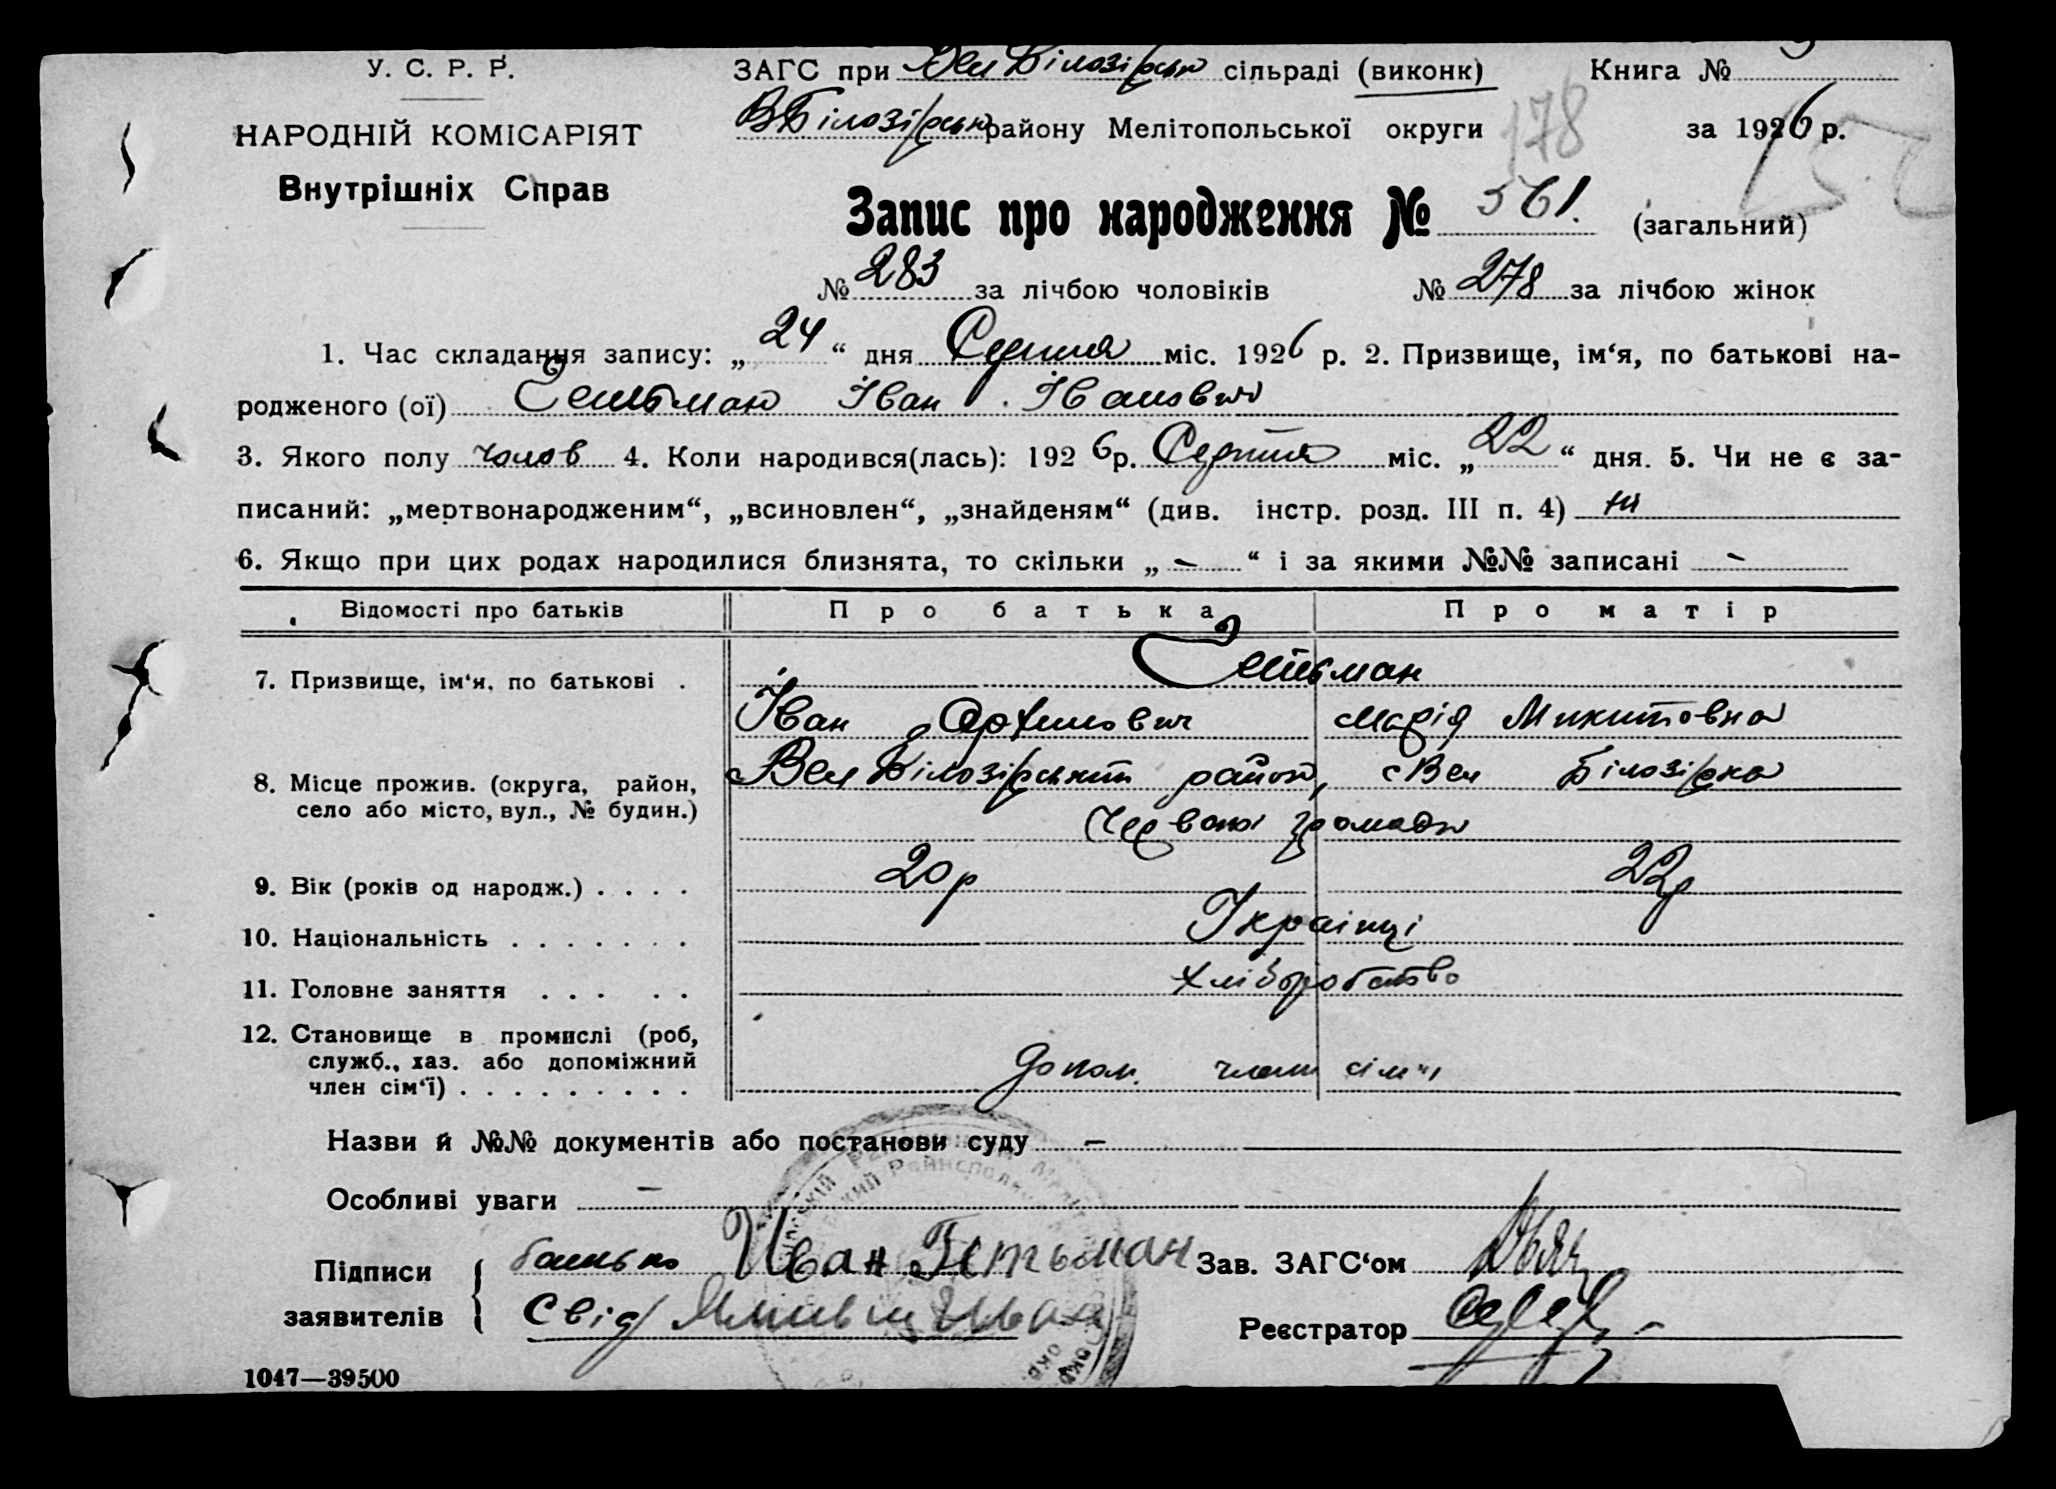 У. С. Р. Р.
НАРОДНІЙ КОМІСАРІЯТ
Внутрішніх Справ
ЗАГС при Вел Білозірськ сільраді (виконк) Книга №
В Білозірськ району Мелітопольської округи за 1926 р.
178
Запис про народження № 561. (загальний)
№ 283 за лічбою чоловіків № 278 за лічбою жінок
1. Час складання запису: „ 24 “ дня Серпня міс. 1926 р. 2. Призвище, ім‘я, по батькові на-
родженого (ої) Гетьман Іван Іванович
3. Якого полу чолов 4. Коли народився(лась): 192 6 р. Серпня міс. „ 22 “ дня. 5. Чи не є за-
писаний: „мертвонародженим“, „всиновлен“, „знайденям“ (див. інстр. розд. III п. 4) ні
6. Якщо при цих родах народилися близнята, то скільки „ - “ і за якими №№ записані -
Відомості про батьків Про батька Про матір
7. Призвище, ім‘я, по батькові . Гетьман
Іван Артимович Марія Микитовна
8. Місце прожив. (округа, район,
село або місто, вул., № будин.)
Вел Білозірський район, с Вел Білозірка
Червоної громади
9. Вік (років од народж.) . . . . 20 р 22 р
10. Національність . . . . . . . Українці
11. Головне заняття . . . . . Хліборобство
12. Становище в промислі (роб,
служб., хаз. або допоміжний
член сім‘ї) . . . . . . . . . Допом. член сім'ї
Назви й №№ документів або постанови суду -
Особливі уваги -
Підписи
заявителів
батько Иван Гетьман
Свід Иван
Зав. ЗАГС‘ом
Реєстратор
1047—39500